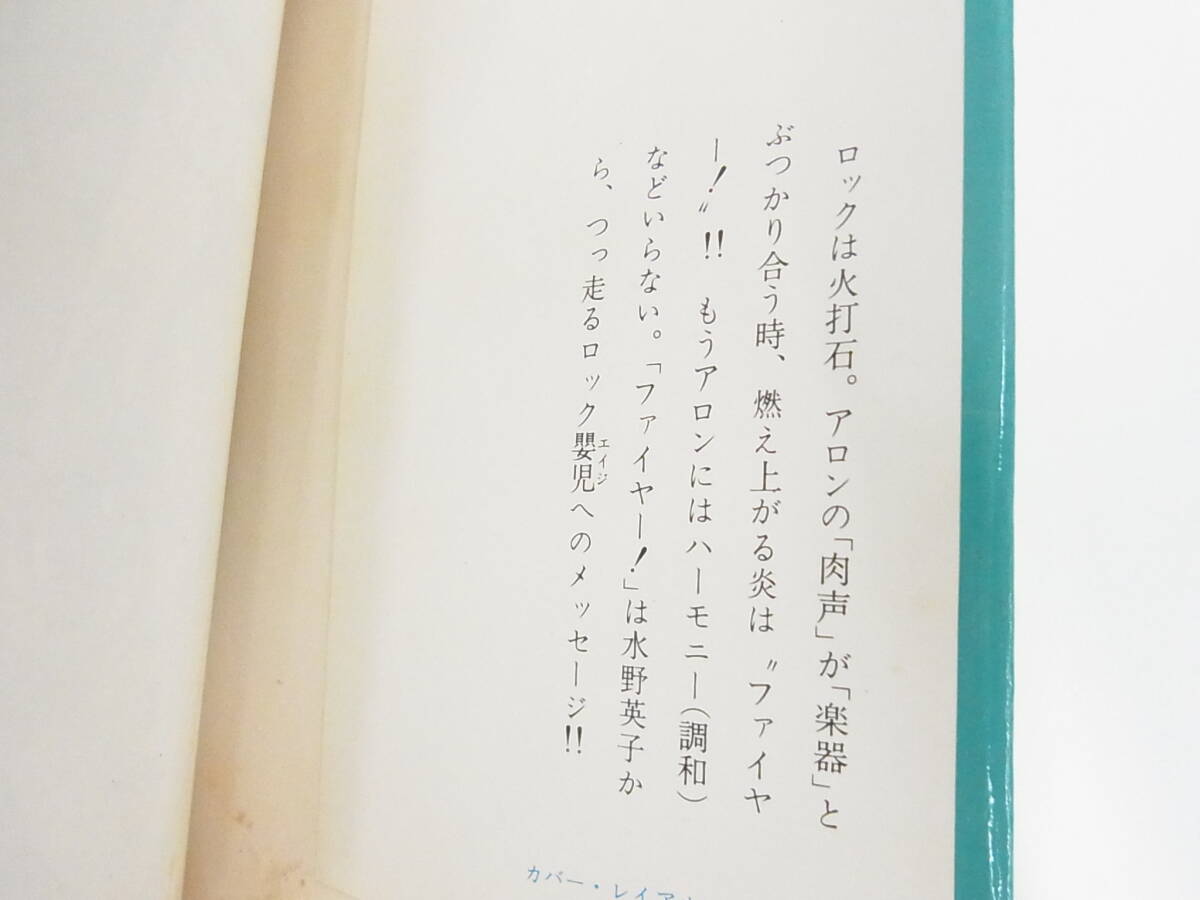 ロックは火打石。アロンの「肉声」が「楽器」と
ぶつかり合う時、燃え上がる炎は〝ファイヤ
ー！〟!! もうアロンにはハーモニー(調和)
などいらない。「ファイヤー！」は水野英子か
ら、つっ走るロック嬰児エイジへのメッセージ!!
カバー・レイア